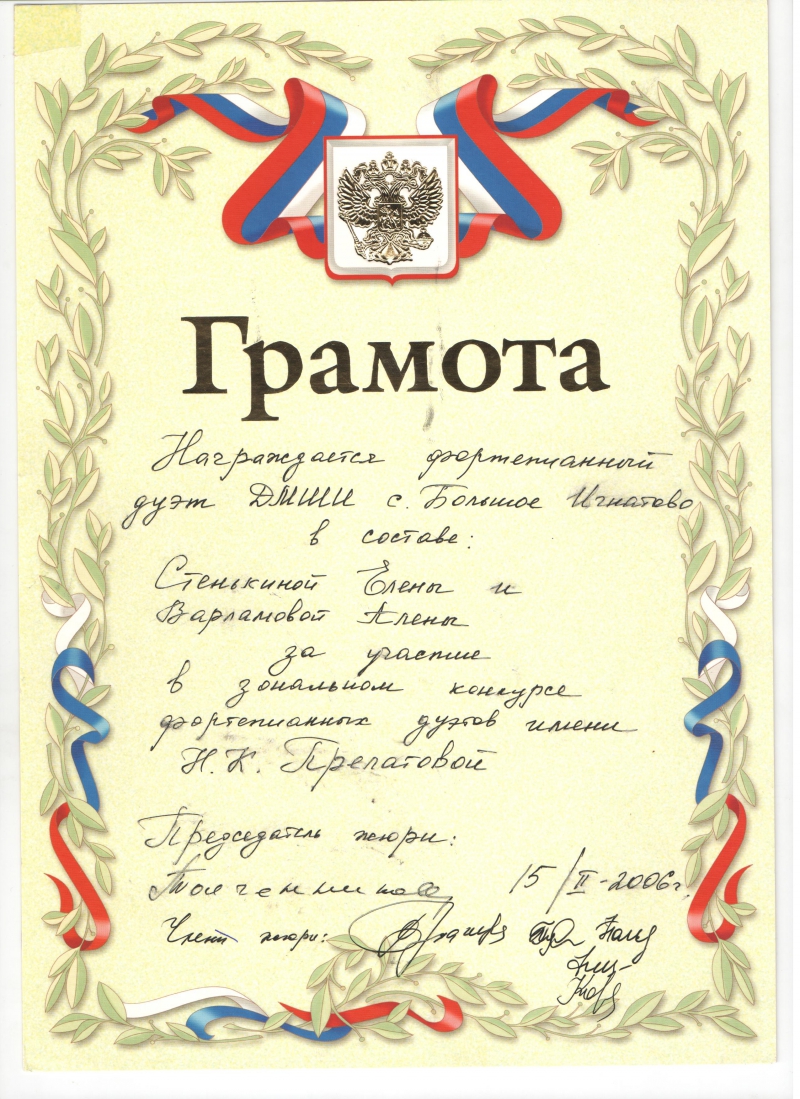 Грамота
Награждается фортепианный
дуэт ДМШИ с. Большое Игнатово
в составе:
Стенькиной Елены и
Варламовой Алены
за участие
в зональном конкурсе
фортепианных дуэтов имени
Н. К.
Председатель жюри:
15/II-2006г.
Члены жюри: